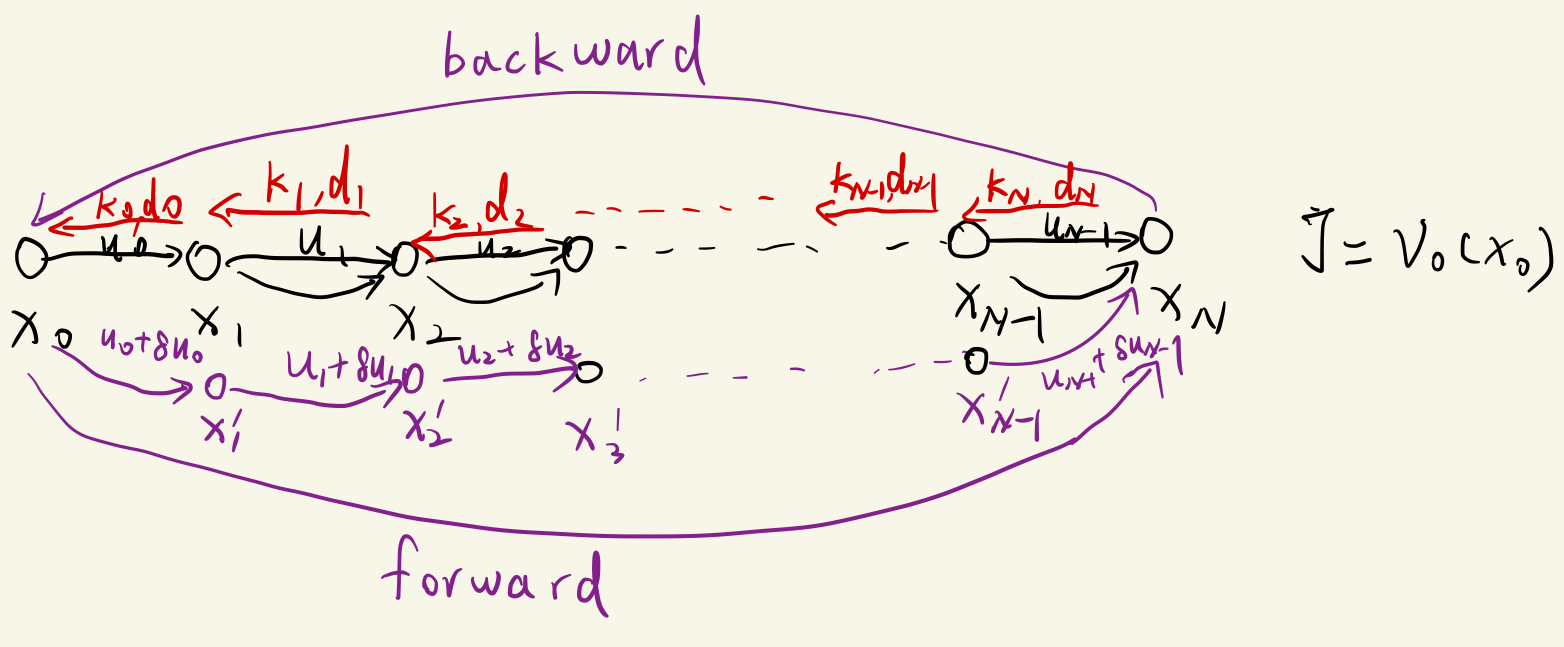 backward
k₀,d₀ k₁,d₁ k₂,d₂ k_{N-1},d_{N-1} k_N,d_N
u₀ u₁ u₂ u_{N-1}
J = V₀(x₀)
x₀ x₁ x₂ x_{N-1} x_N
u₀+δu₀ u₁+δu₁ u₂+δu₂ u_{N-1}+δu_{N-1}
x₁' x₂' x₃' x'_{N-1}
forward